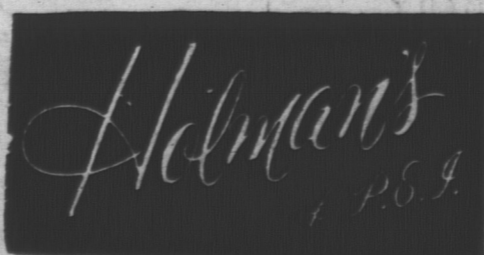 Holman's
P.E.I.